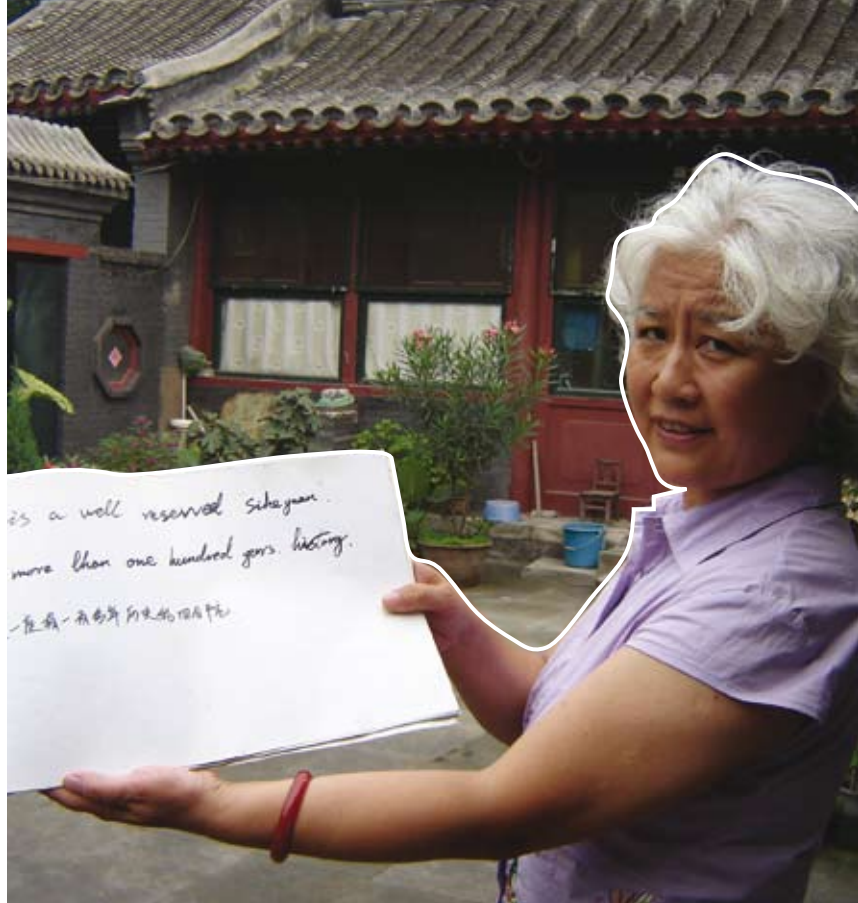 is a well reserved siheyuan.
more than one hundred years. history.
一座有一百多年历史的四合院